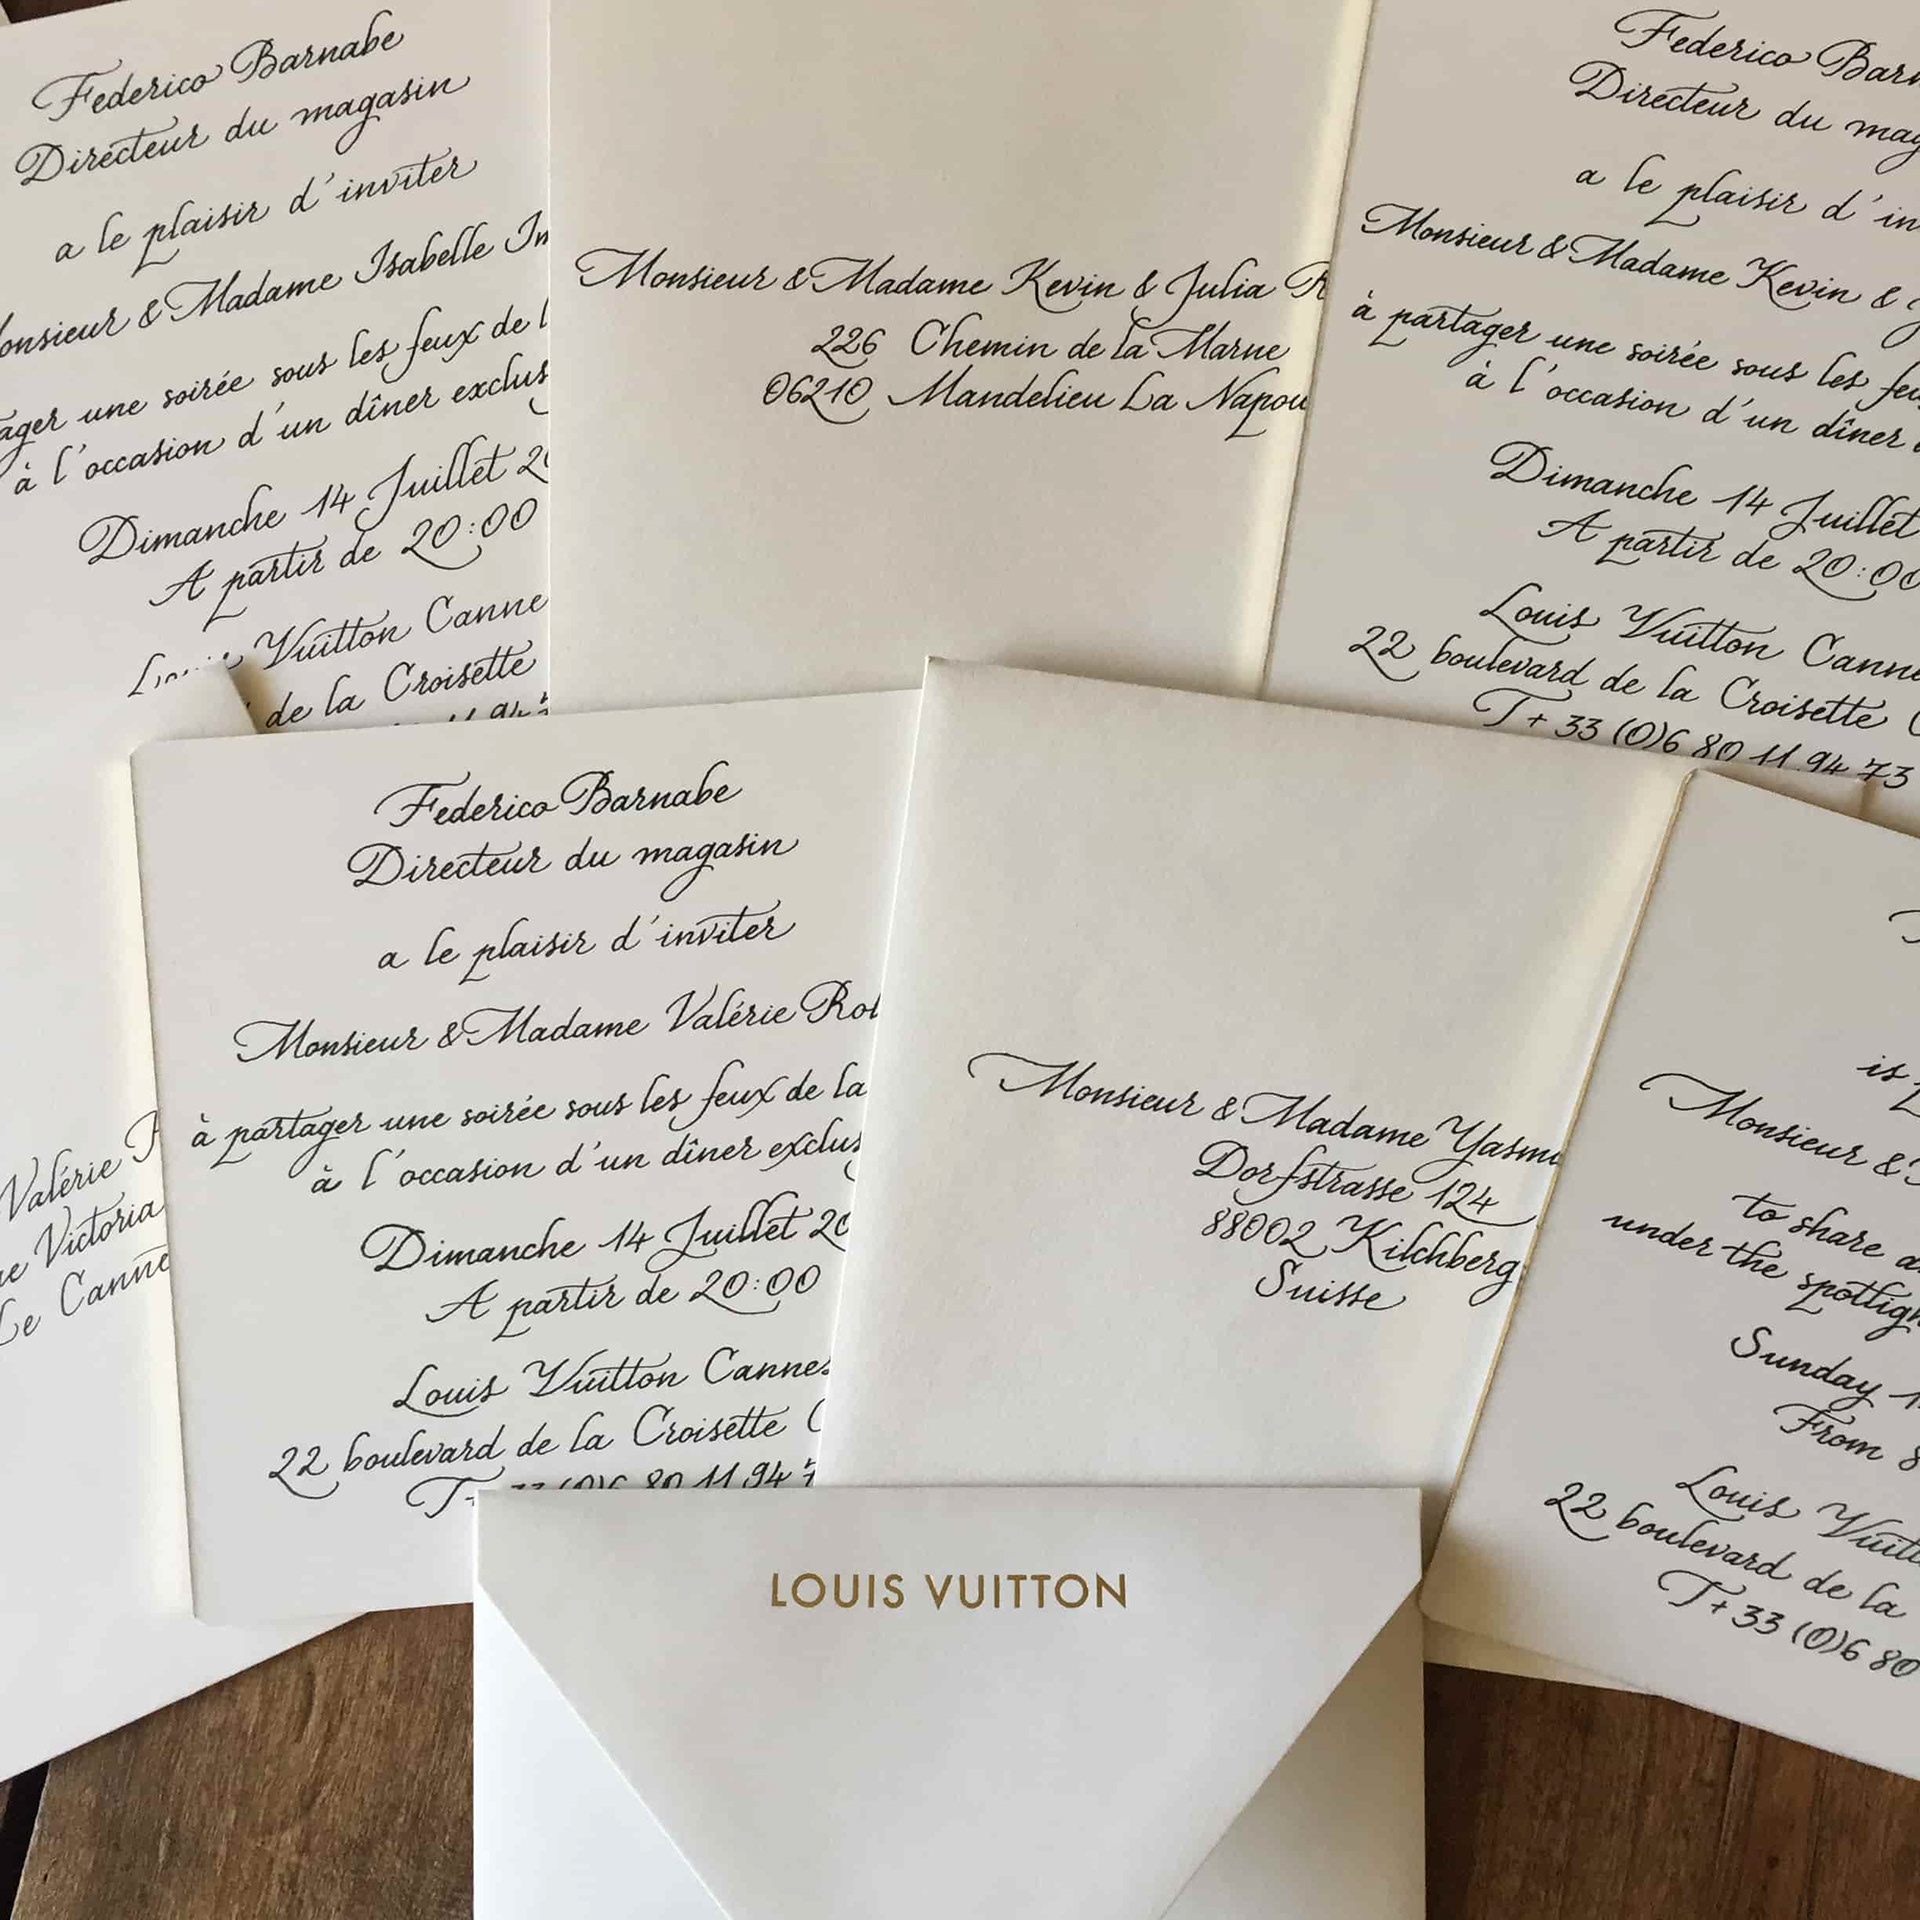 Federico Barnabe
Directeur du magasin
a le plaisir d'inviter
Monsieur & Madame Isabelle
une soirée sous les feux de
à l'occasion d'un dîner
Dimanche 14 Juillet
A partir de 20:00
Vuitton
de la Croisette
Monsieur & Madame Kevin & Julia
226 Chemin de la Marne
06210 Mandelieu La
Federico
Directeur du
a le plaisir
Monsieur & Madame Kevin &
à partager une soirée sous les
à l'occasion d'un dîner
Dimanche 14 Juillet
A partir de 20:00
Louis Vuitton
22 boulevard de la Croisette
T+33 (0)6 80 11 94 73
Valérie
Victoria
Le
Federico Barnabe
Directeur du magasin
a le plaisir d'inviter
Monsieur & Madame Valérie
à partager une soirée sous les feux de la
à l'occasion d'un dîner
Dimanche 14 Juillet
A partir de 20:00
Louis Vuitton Cannes
22 boulevard de la Croisette
80 11 94
Monsieur & Madame
Dorfstrasse 124
88002 Kilchberg
Suisse
is
Monsieur &
to share
under the
Sunday
From 8
Louis
22 boulevard de la
T+33 (0)6 80
LOUIS VUITTON